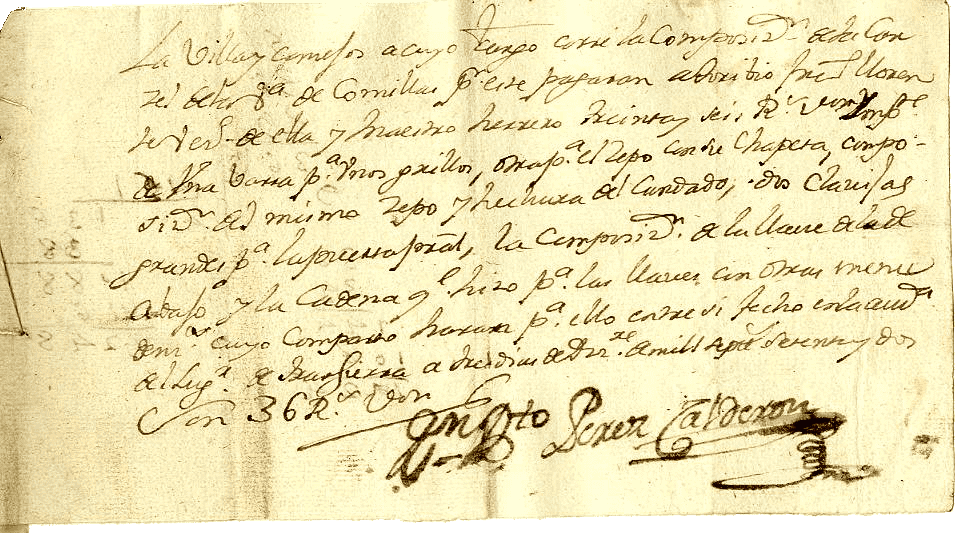 La Villa y conzejos a cuyo cargo corre la Composizn. de la Car
zel de esta Va. de Comillas pr. este pagaran a Toribio Frnz. Lloren
te Vezo. de ella y Maestro herrero treinta y seis Rs. Von. Impe.
de Una barra pa. Unos grillos, otra pa. el Zepo con su Chapeta, compo-
sizn. del mismo Zepo y hechura del Candado, dos Clavijas
grandes pa. la puerta pral, la Composizn. de la llave de la de
abajo y la Cadena qe. hizo pa. las llaves con otras menu
denzs. cuyo Comparto haran pa. ello entre si fecho en la audа.
del lugr. de a tres dias de Dizre. de mill setezs. Setenta y dos
Son 36 Rs. Von
Perez Calderon